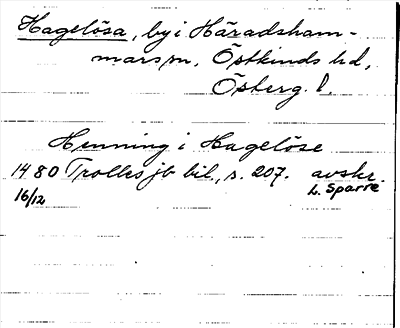 Hagelösa, by i Häradsham-
mars sn, Östkinds hd,
Österg. l.
Henning i Hagelöse
1480 Trolles jb bil., s. 207. avskr.
16/12 L. Sparre